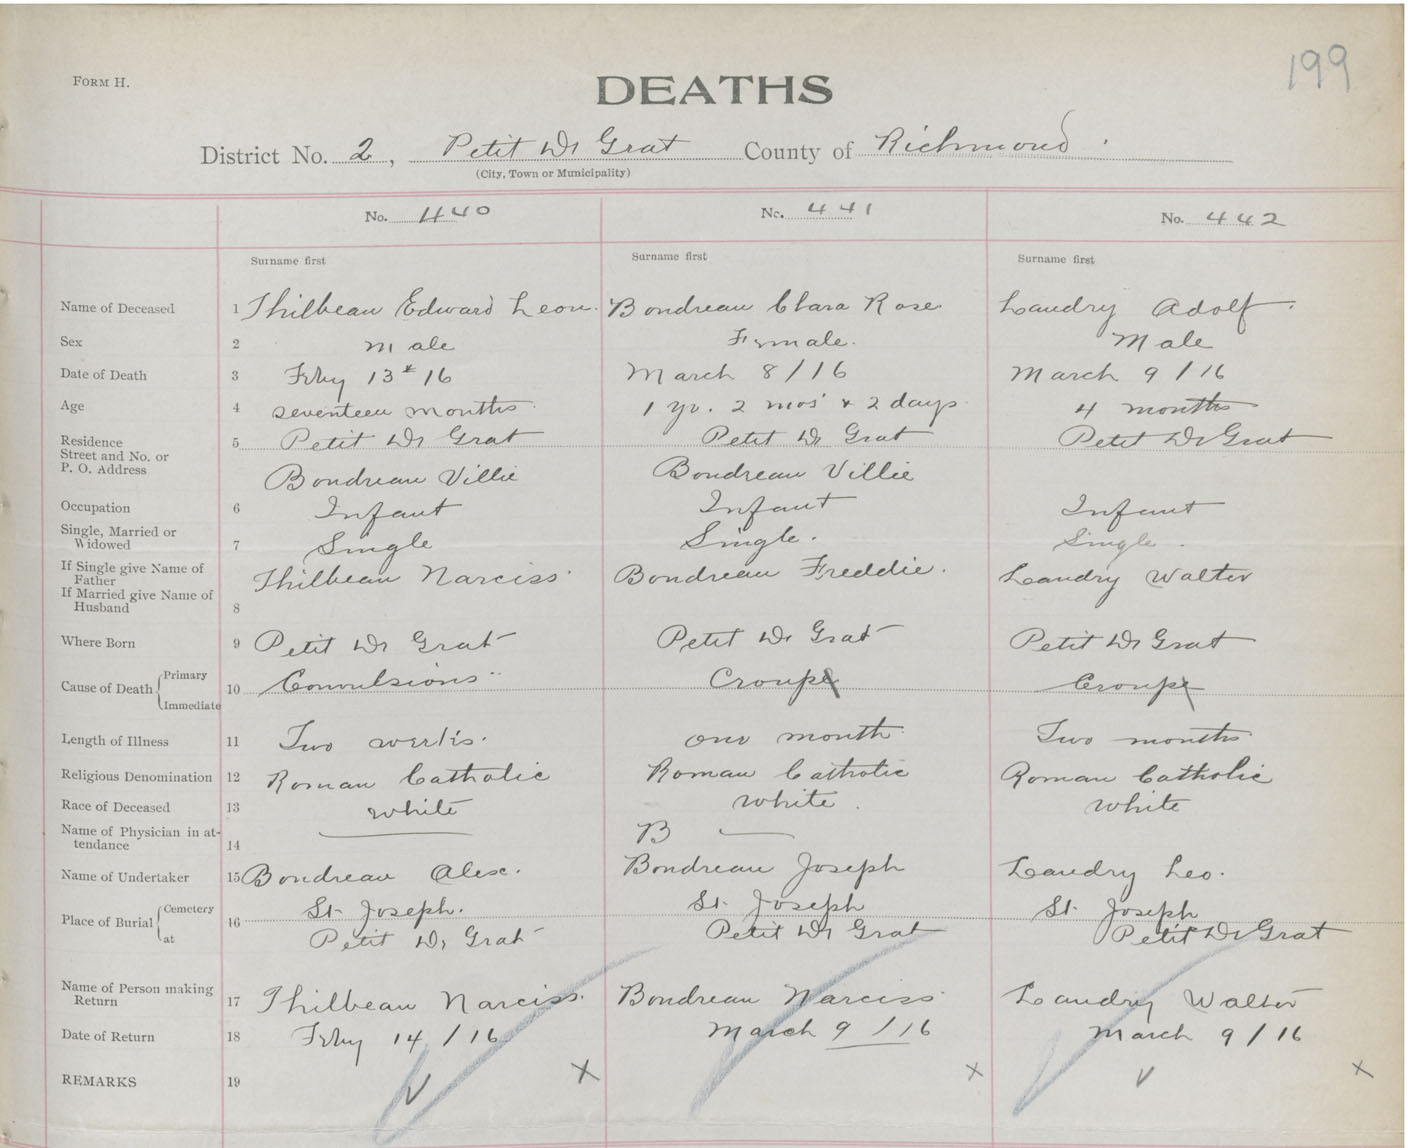 199
FORM H.
DEATHS
District No. 2, Petit De Grat County of Richmond
(City, Town or Municipality)
No. 440 No. 441 No. 442
Surname first Surname first Surname first
Name of Deceased 1 Thilbeau Edward Leon. Bondreau Clara Rose Landry Adolf.
Sex 2 Male Female. Male
Date of Death 3 Feby 13th 16 March 8/16 March 9/16
Age 4 seventeen months 1 yr. 2 mos & 2 days 4 months
Residence Street and No. or P. O. Address 5 Petit De Grat Petit De Grat Petit De Grat
Bondreau Villie Bondreau Villie
Occupation 6 Infant Infant Infant
Single, Married or Widowed 7 Single Single. Single.
If Single give Name of Father Thilbeau Narciss Bondreau Freddie. Landry Walter
If Married give Name of Husband 8
Where Born 9 Petit De Grat Petit De Grat Petit De Grat
Cause of Death Primary Immediate 10 Convulsions Croup Croup
Length of Illness 11 Two weeks. One month Two months
Religious Denomination 12 Roman Catholic Roman Catholic Roman Catholic
Race of Deceased 13 White White. White
Name of Physician in attendance 14 B
Name of Undertaker 15 Bondreau Alex. Bondreau Joseph Landry Leo.
Place of Burial Cemetery 16 St. Joseph. St. Joseph St. Joseph
at Petit De Grat Petit De Grat Petit De Grat
Name of Person making Return 17 Thilbeau Narciss. Bondreau Narciss Landry Walter
Date of Return 18 Feby 14/16 March 9/16 March 9/16
REMARKS 19 X X X